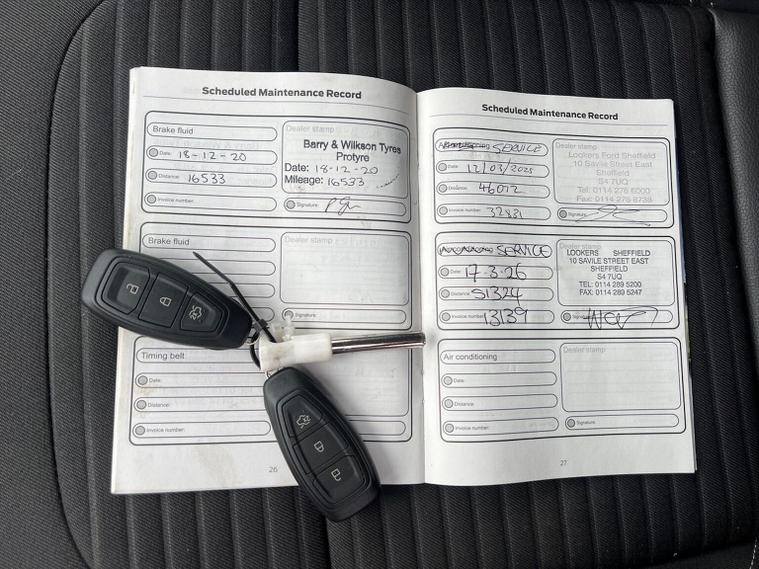 Scheduled Maintenance Record
Brake fluid
Date: 18-12-20
Distance: 16533
Invoice number:
Dealer stamp
Barry & Wilkson Tyres
Protyre
Date: 18-12-20
Mileage: 16533
Signature:
Brake fluid
Dealer stamp
Signature:
Timing belt
Date:
Distance:
Invoice number:
26
Scheduled Maintenance Record
SERVICE
Date: 12/03/2025
Distance: 46072
Invoice number: 32831
Dealer stamp
Lookers Ford Sheffield
10 Savile Street East
Sheffield
S4 7UQ
Tel: 0114 276 6000
Fax: 0114 275 8739
Signature:
SERVICE
Date: 17-3-26
Distance: 51324
Invoice number: 13139
Dealer stamp
LOOKERS SHEFFIELD
10 SAVILE STREET EAST
SHEFFIELD
S4 7UQ
TEL: 0114 289 5200
FAX: 0114 289 5247
Air conditioning
Date:
Distance:
Invoice number:
Dealer stamp
Signature:
27